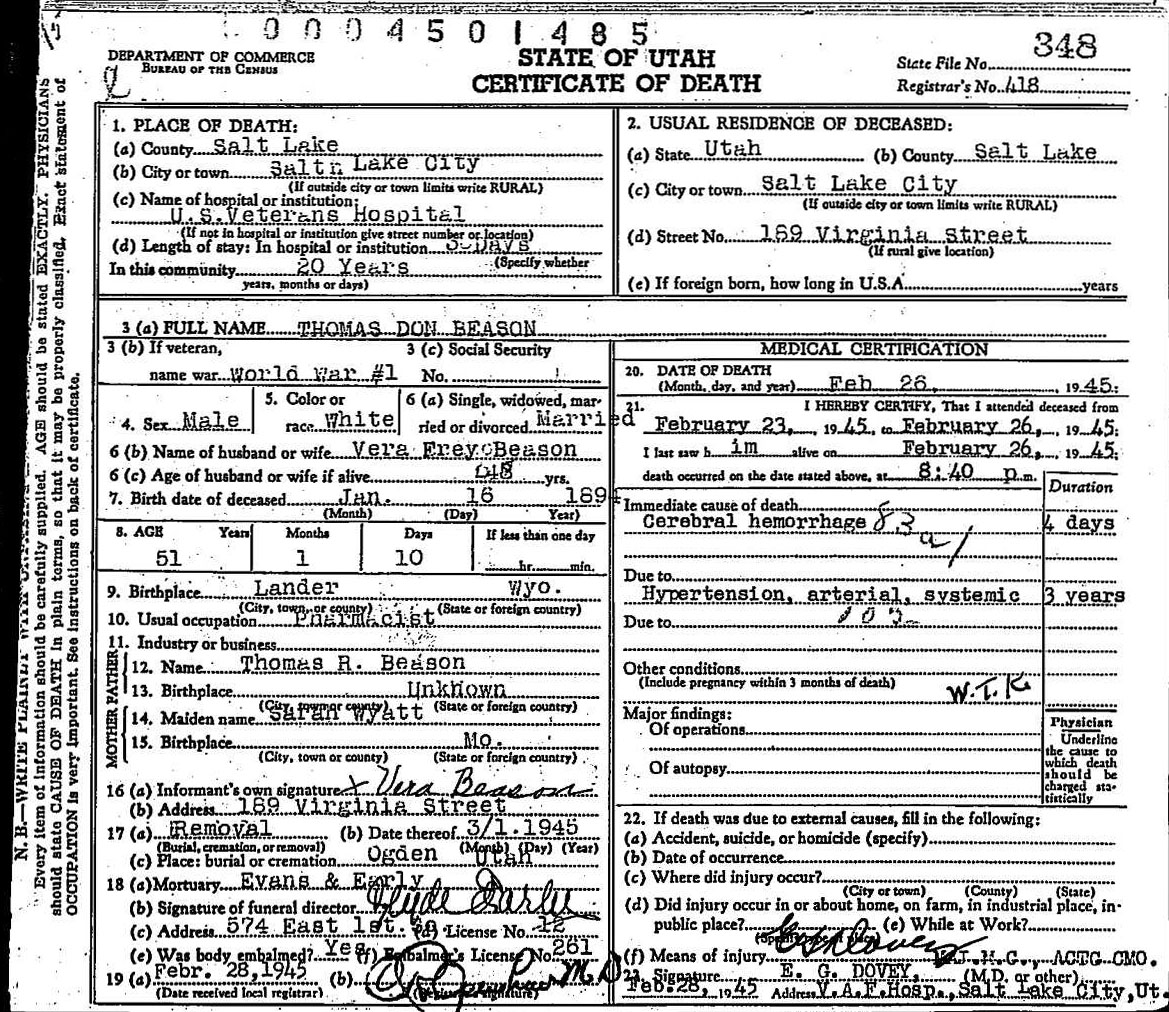 0004501485
348
DEPARTMENT OF COMMERCE
BUREAU OF THE CENSUS
STATE OF UTAH
CERTIFICATE OF DEATH
State File No.
Registrar's No. 418
N. B.—WRITE PLAINLY WITH
Every item of information should be carefully supplied. AGE should be stated EXACTLY. PHYSICIANS
should state CAUSE OF DEATH in plain terms, so that it may be properly classified. Exact statement of
OCCUPATION is very important. See instructions on back of certificate.
1. PLACE OF DEATH:
(a) County Salt Lake
(b) City or town Saltn Lake City
(If outside city or town limits write RURAL)
(c) Name of hospital or institution:
U.S.Veterans Hospital
(If not in hospital or institution give street number or location)
(d) Length of stay: In hospital or institution 3 Days
(Specify whether
In this community 20 Years
years, months or days)
2. USUAL RESIDENCE OF DECEASED:
(a) State Utah (b) County Salt Lake
(c) City or town Salt Lake City
(If outside city or town limits write RURAL)
(d) Street No. 189 Virginia Street
(If rural give location)
(e) If foreign born, how long in U.S.A. years
3 (a) FULL NAME THOMAS DON BEASON
3 (b) If veteran, 3 (c) Social Security
name war World War #1 No.
4. Sex Male 5. Color or race White 6 (a) Single, widowed, married or divorced Married
6 (b) Name of husband or wife Vera Frey Beason
6 (c) Age of husband or wife if alive 48 yrs.
7. Birth date of deceased Jan. 16 1894
(Month) (Day) Year)
8. AGE Years Months Days If less than one day
51 1 10 hr. min.
9. Birthplace Lander Wyo.
(City, town, or county) (State or foreign country)
10. Usual occupation Pharmacist
11. Industry or business
FATHER
12. Name Thomas R. Beason
13. Birthplace Unkhown
(City, town or county) (State or foreign country)
MOTHER
14. Maiden name Sarah Wyatt
15. Birthplace Mo.
(City, town or county) (State or foreign country)
16 (a) Informant's own signature x Vera Beason
(b) Address 189 Virginia Street
17 (a) Removal (b) Date thereof 3/1.1945
(Burial, cremation, or removal) (Month) (Day) (Year)
(c) Place: burial or cremation Ogden Utah
18 (a) Mortuary Evans & Early
(b) Signature of funeral director
(c) Address 574 East 1st. So (d) License No. 12
(e) Was body embalmed? Yes (f) Embalmer's License No. 261
19 (a) Febr. 28,1945 (b) M.D
(Date received local registrar)
MEDICAL CERTIFICATION
20. DATE OF DEATH
(Month, day, and year) Feb 26, 1945.
21. I HEREBY CERTIFY, That I attended deceased from
February 23, 1945, to February 26, 1945;
I last saw him alive on February 26, 1945;
death occurred on the date stated above, at 8:40 p.m.
Duration
Immediate cause of death
Cerebral hemorrhage 83 a/ 4 days
Due to
Hypertension, arterial, systemic 3 years
Due to
Other conditions
(Include pregnancy within 3 months of death) W.T.K
Major findings:
Of operations
Of autopsy
Physician
Underline
the cause to
which death
should be
charged statistically
22. If death was due to external causes, fill in the following:
(a) Accident, suicide, or homicide (specify)
(b) Date of occurrence
(c) Where did injury occur?
(City or town) (County) (State)
(d) Did injury occur in or about home, on farm, in industrial place, in
public place? (e) While at Work?
(f) Means of injury ACTG CMO.
23. Signature E. G. DOVEY, (M.D. or other)
Feb.28, 1945 Address V.A.F.Hosp., Salt Lake City,Ut.